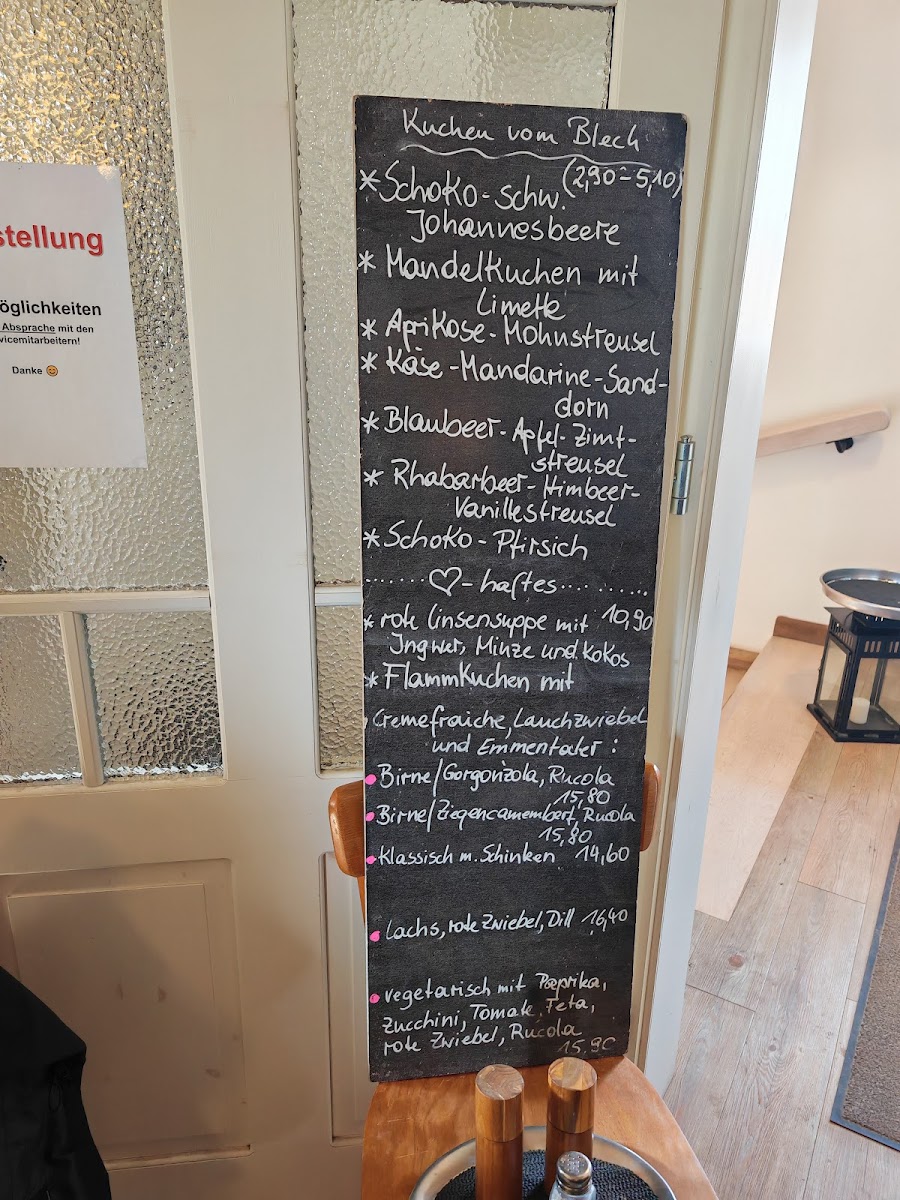 stellung
öglichkeiten
Absprache mit den
vicemitarbeitern!
Danke 😊
Kuchen vom Blech
(2,90 - 5,10)
* Schoko-schw.
Johannesbeere
* Mandelkuchen mit
Limette
* Aprikose-Mohnstreusel
* Käse-Mandarine-Sand-
dorn
* Blaubeer-Apfel-Zimt-
streusel
* Rhabarber-Himbeer-
Vanillestreusel
* Schoko-Pfirsich
.......♡-haftes.........
* rote Linsensuppe mit 10,90
Ingwer, Minze und Kokos
* Flammkuchen mit
Cremefraiche, Lauchzwiebel
und Emmentaler :
• Birne/Gorgonzola, Rucola
15,80
• Birne/Ziegencamembert, Rucola
15,80
• Klassisch m. Schinken 14,60
• Lachs, rote Zwiebel, Dill 16,40
• vegetarisch mit Paprika,
Zucchini, Tomate, Feta,
rote Zwiebel, Rucola
15,90